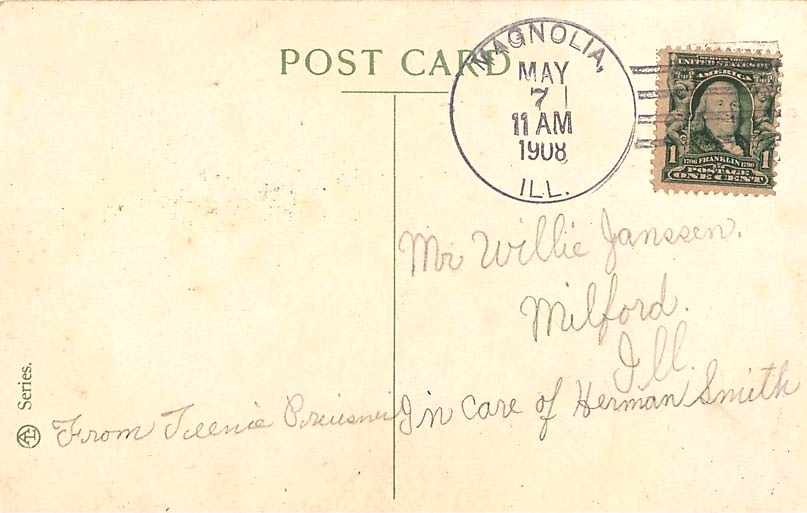 POST CARD
MAGNOLIA,
MAY
7
11 AM
1908
ILL.
SERIES 1902
UNITED STATES OF
AMERICA
1706 FRANKLIN 1790
1 POSTAGE 1
ONE CENT
Mr Willie Janssen.
Milford.
Ill.
In care of Herman Smith
From
Series.